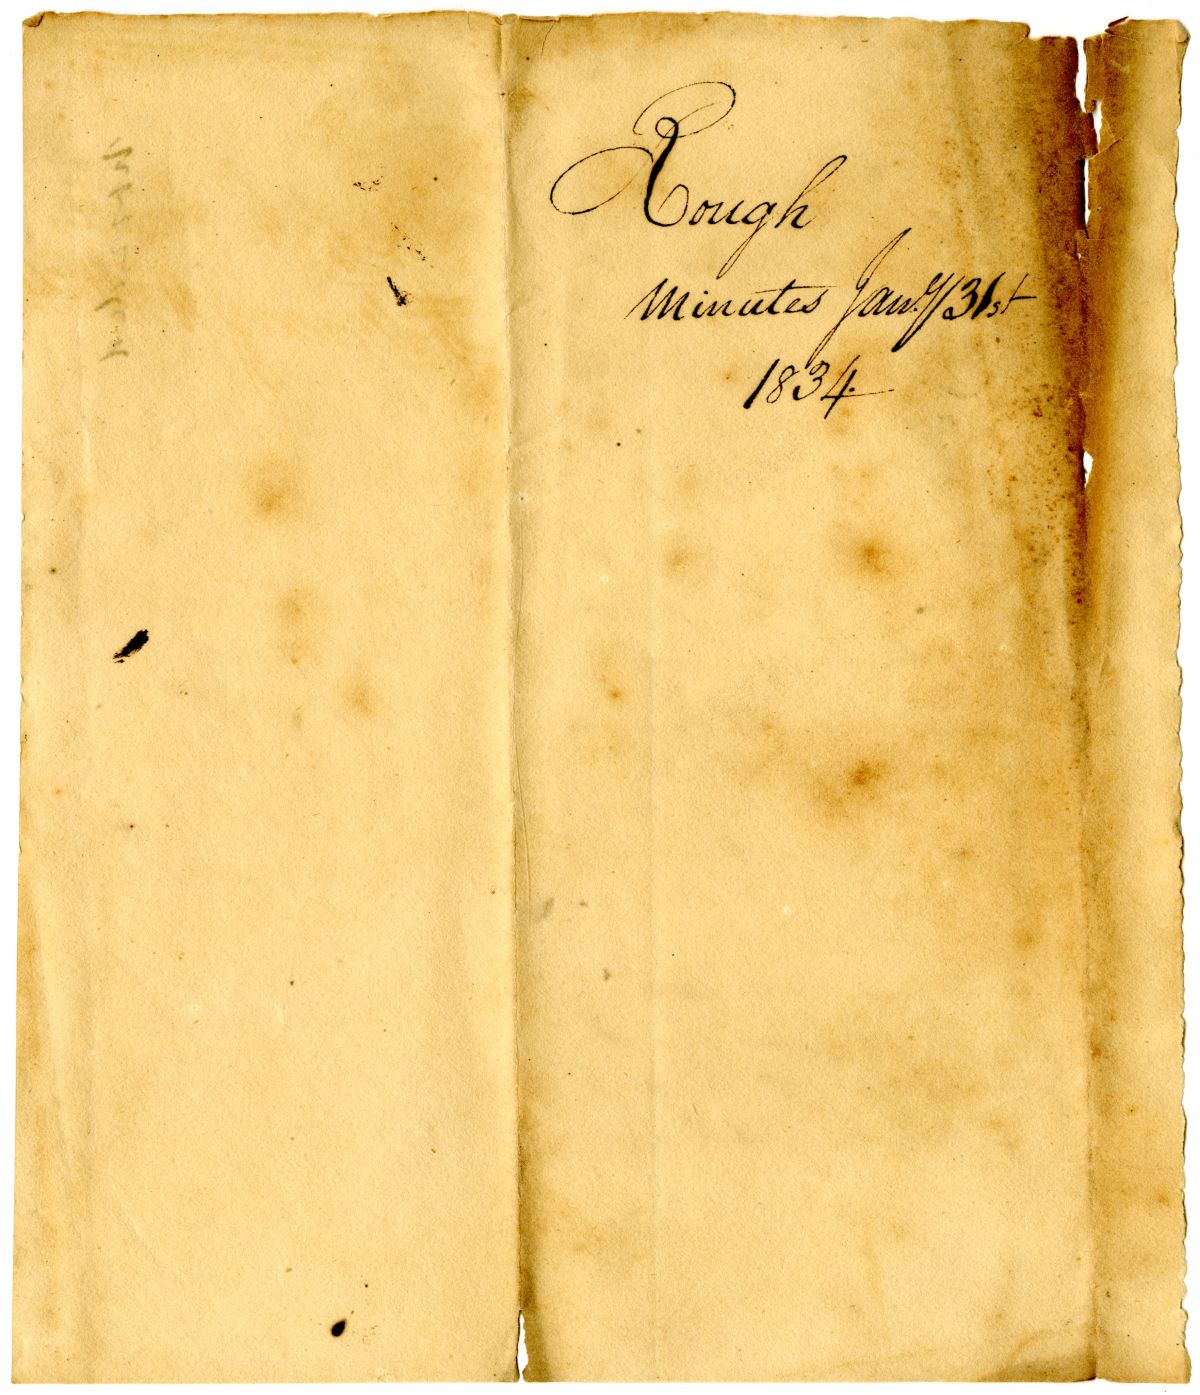 Rough
Minutes Jany 31st
1834.